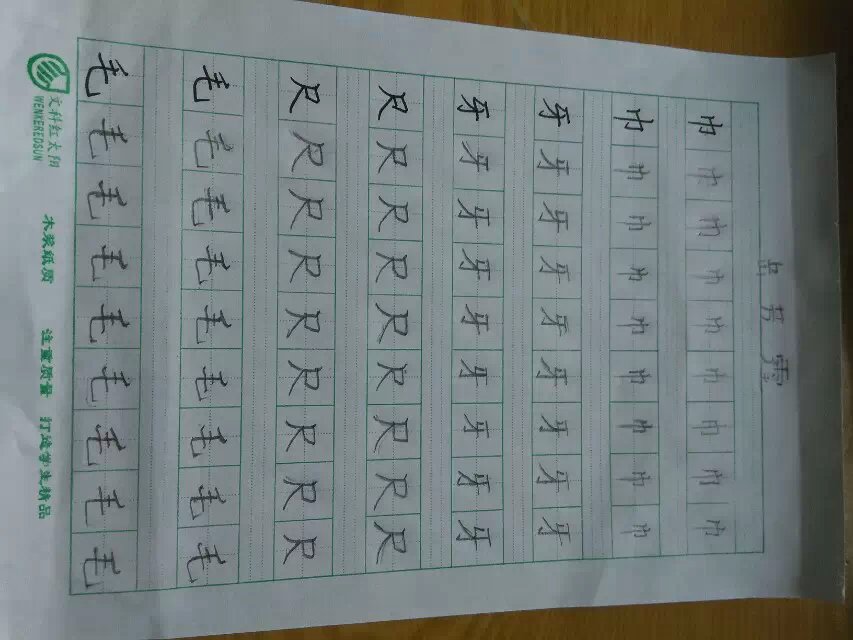 巾巾巾巾巾巾巾巾巾
巾巾巾巾巾巾巾巾巾
牙牙牙牙牙牙牙牙牙
牙牙牙牙牙牙牙牙牙
尺尺尺尺尺尺尺尺尺
尺尺尺尺尺尺尺尺尺
毛毛毛毛毛毛毛毛毛
毛毛毛毛毛毛毛毛毛
文科红太阳
WENKEREDSUN
木浆纸质 注重质量 打造学生精品